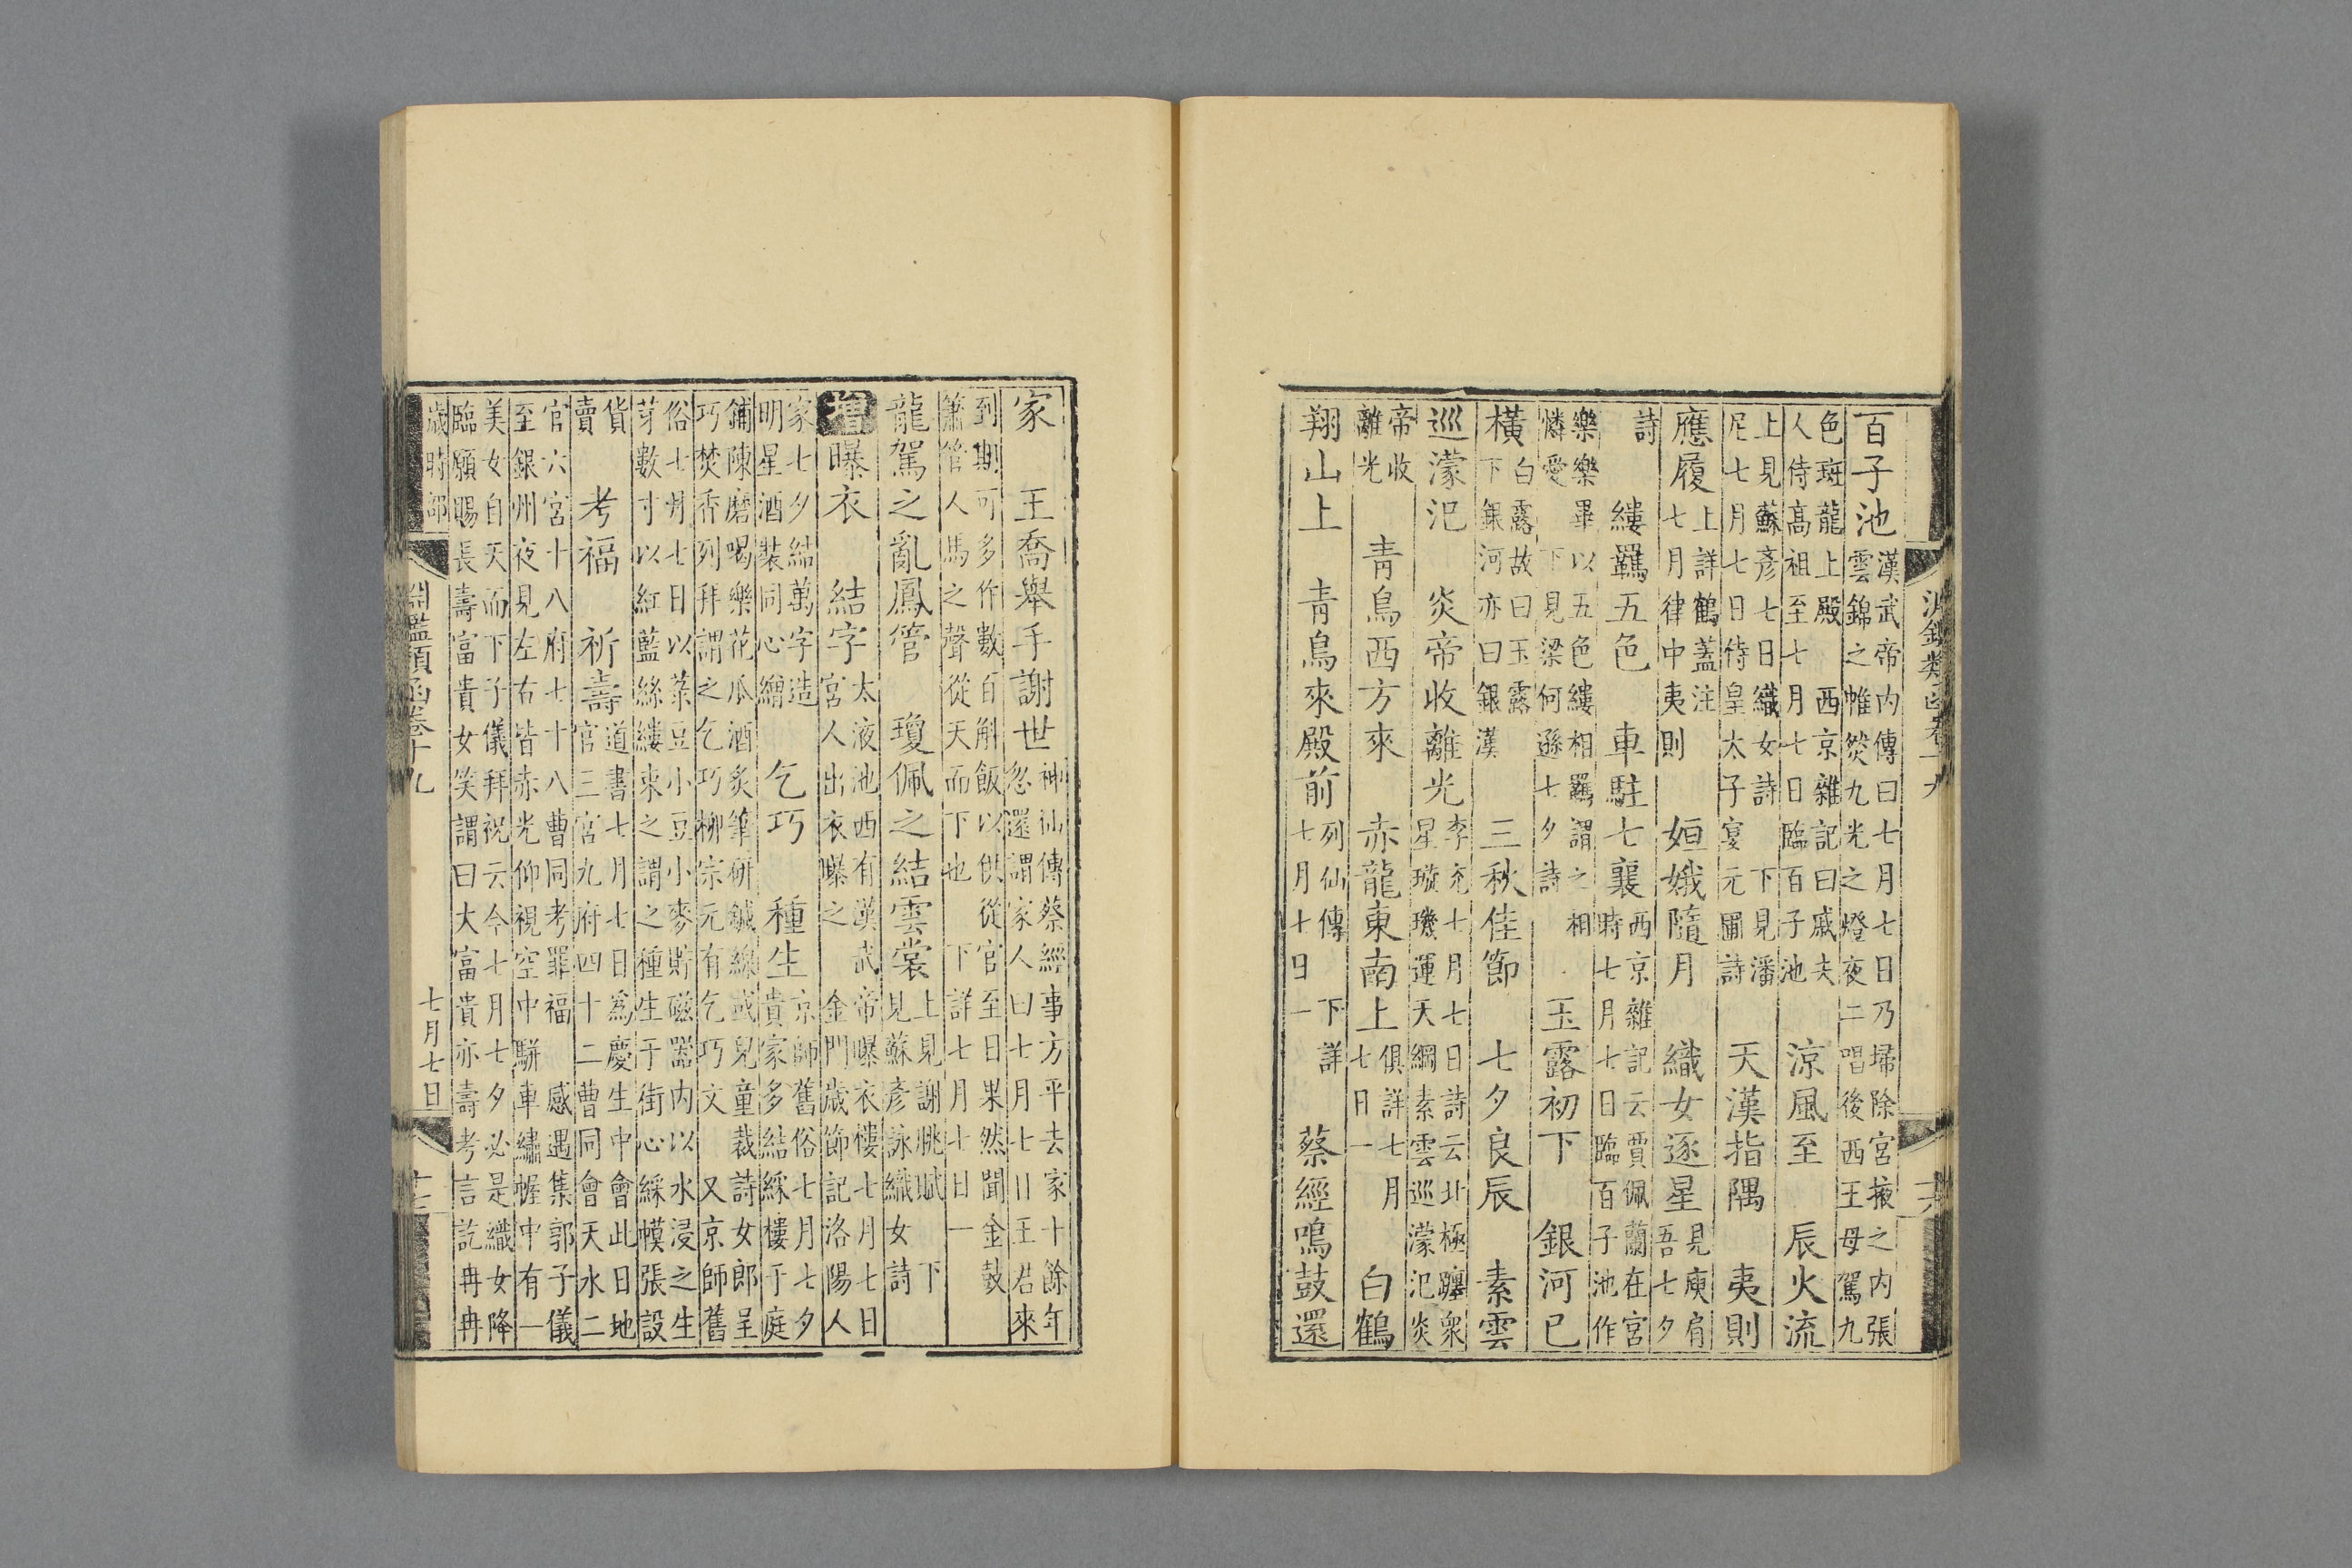 百子池漢武帝内傳曰七月七日乃埽除宮掖之内張雲錦之帷燃九光之燈夜二唱後西王母駕九
色斑龍上殿　西京雜記曰戚夫人侍高祖至七月七日臨百子池　涼風至　辰火流
上見蘇彥七日織女詩　下見潘尼七月七日侍皇太子宴元圃詩　天漢指隅　夷則
應履上詳鶴蓋注七月律中夷則　姮娥隨月　織女逐星見庾肩吾七夕
詩　縷羈五色　車駐七襄西京雜記云賈佩蘭在宮時七月七日臨百子池作
樂樂畢以五色縷相羈謂之相憐愛　下見梁何遜七夕詩　玉露初下　銀河已
橫白露故曰玉露下銀河亦曰銀漢　三秋佳節　七夕良辰　素雲
巡濛汜　炎帝收離光李充七月七日詩云北極躔衆星璇璣運天綱素雲巡濛汜炎
帝收離光　青鳥西方來　赤龍東南上俱詳七月七日一　白鶴
翔山上　青鳥來殿前列仙傳　下詳七月七日一　蔡經鳴鼓還
淵鑑類函卷十九
十六
家　王喬舉手謝世神仙傳蔡經事方平去家十餘年忽還謂家人曰七月七日王君來
到期可多作數百斛飯以供從官至日果然聞金鼓簫管人馬之聲從天而下也　下詳七月七日一
龍駕之亂鳳管　瓊佩之結雲裳上見謝朓賦　下見蘇彥詠織女詩
增曝衣　結字太液池西有漢武帝曝衣樓七月七日宮人出衣曝之　金門歲節記洛陽人
家七夕結萬字造明星酒裝同心繒　乞巧　種生京師舊俗七月七夕貴家多結綵樓于庭
鋪陳磨喝樂花瓜酒炙筆研鍼線或兒童裁詩女郎呈巧焚香列拜謂之乞巧柳宗元有乞巧文　又京師舊
俗七月七日以菉豆小豆小麥貯磁器内以水浸之生芽數寸以紅藍絲縷束之謂之種生于街心綵幙張設
貨賣　考福　祈壽道書七月七日為慶生中會此日地官三宮九府四十二曹同會天水二
官六宮十八府七十八曹同考罪福　感遇集郭子儀至銀州夜見左右皆赤光仰視空中駢車繡幄中有一
美女自天而下子儀拜祝云今七月七夕必是織女降臨願賜長壽富貴女笑謂曰大富貴亦壽考言訖冉冉
歲時部　淵鑑類函卷十九　七月七日